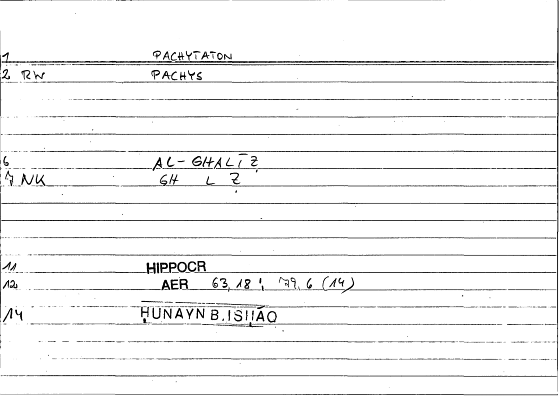 1 PACHYTATON
2 RW PACHYS
6 AL-GHALĪẒ
7 NK GH L Ẓ
11 HIPPOCR
12 AER 63,18; 79,6 (14)
14 ḤUNAYN B.ISḤĀQ